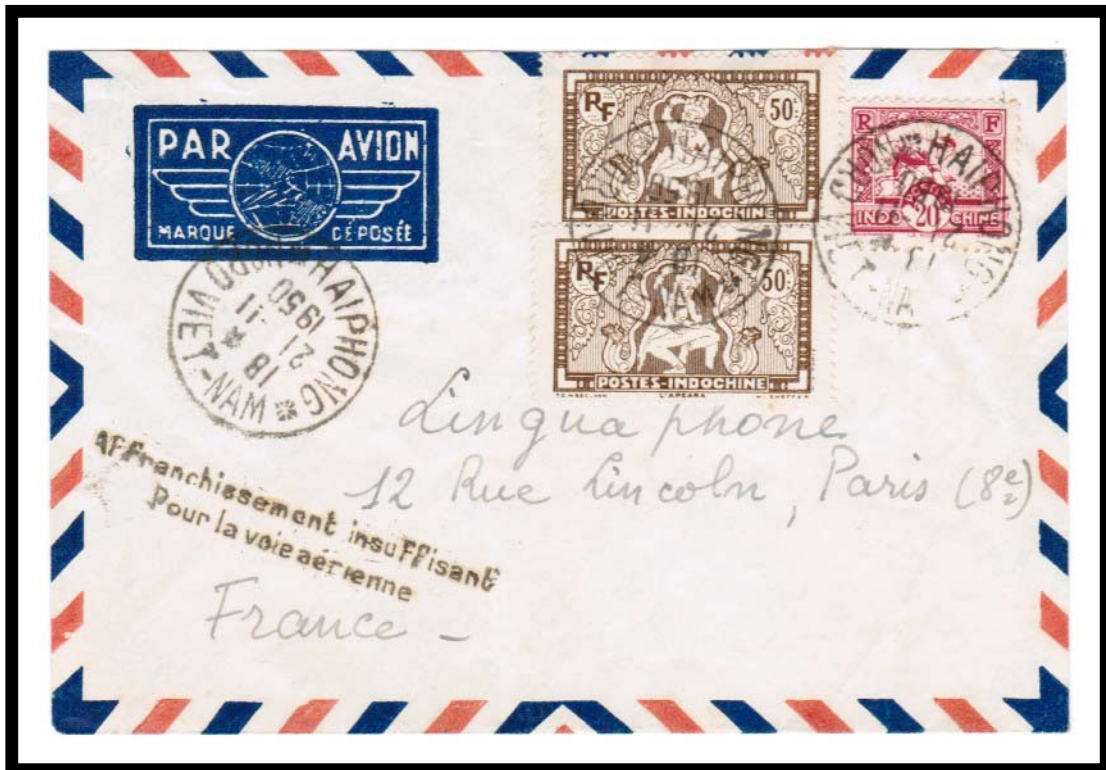 PAR AVION
MARQUE DÉPOSÉE
RF 50c.
POSTES-INDOCHINE
RF 50c.
POSTES-INDOCHINE
L'APSARA
R F
INDO 20c CHINE
HAIPHONG
VIET-NAM
18
21 11
1950
Affranchissement insuffisant
Pour la voie aérienne
Linguaphone
12 Rue Lincoln, Paris (8e)
France -